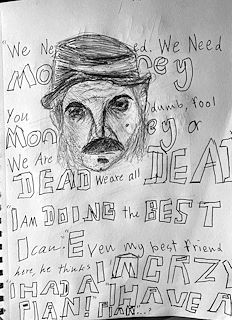 "We Ne ed. We Need
Mo ney
You dumb, fool
Mon ey or
We Are
DEAD We are all DEAD
"I AM DOING the BEST
I can." "Even my best friend
here, he thinks I'M CRZY
I HAD A I HAVE A
PLAN! PLAN...?